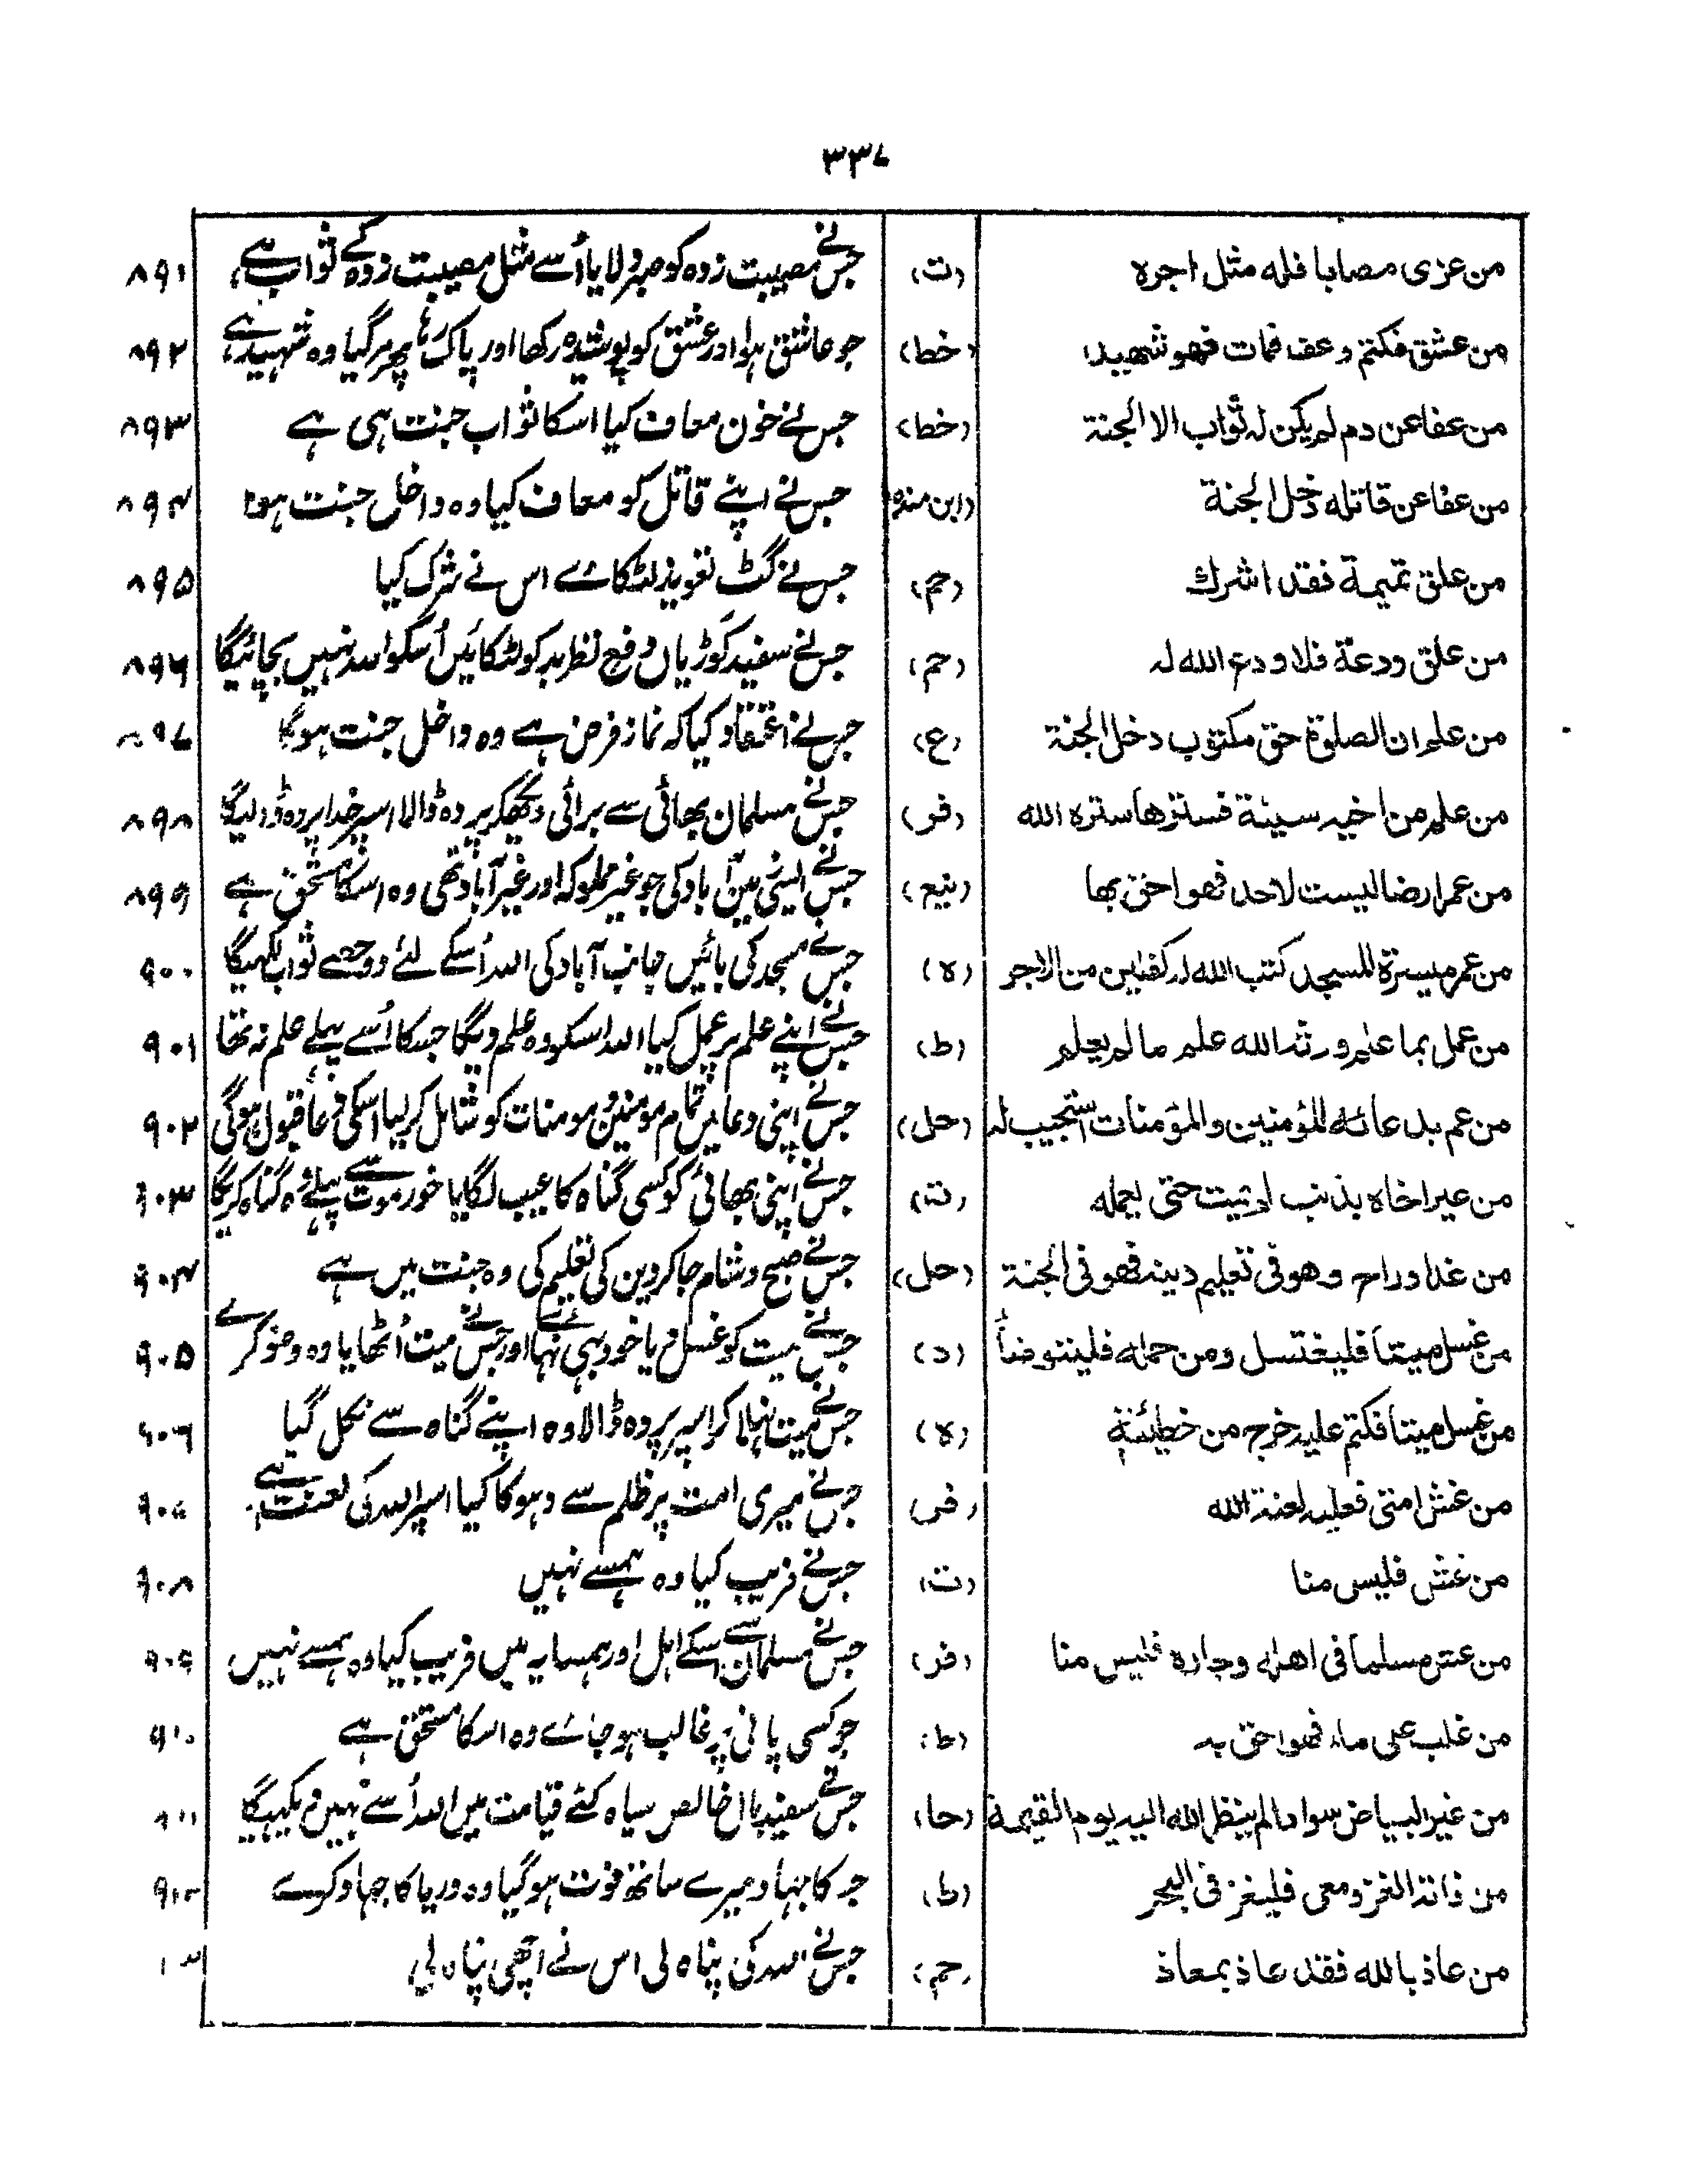 ۳۳۷
من عزى مصابا فله مثل اجره (ت) جس نے مصیبت زدہ کو صبر دلایا اُسے مثل مصیبت زدہ کے ثواب ہے ۸۹۱
من عشق فكتم وعف فمات فهو شهيد (خط) جو عاشق ہوا اور عشق کو پوشیدہ رکھا اور پاک رہا پھر مر گیا وہ شہید ہے ۸۹۲
من عفا عن دم لم يكن له ثواب الا الجنة (خط) جس نے خون معاف کیا اسکا ثواب جنت ہی ہے ۸۹۳
من عفا عن قاتله دخل الجنة (ابن منده) جس نے اپنے قاتل کو معاف کیا وہ داخل جنت ہوا ۸۹۴
من علق تميمة فقد اشرك (حم) جس نے گٹ تعویذ لٹکائے اس نے شرک کیا ۸۹۵
من علق ودعة فلا ودع الله له (حم) جس نے سفید کوڑیاں دفع نظر بد کو لٹکائیں اُسکو اللہ نہیں بچائیگا ۸۹۶
من علم ان الصلوة حق مكتوب دخل الجنة (ع) جس نے اعتقاد کیا کہ نماز فرض ہے وہ داخل جنت ہوگا ۸۹۷
من علم من اخيه سيئة فسترها ستره الله (فر) جس نے مسلمان بھائی سے برائی دیکھکر پردہ ڈالا اسپر خدا پردہ ڈالیگا ۸۹۸
من عمر ارضا ليست لاحد فهو احق بها جس نے ایسی زمین آباد کی جو غیر مملوکہ اور غیر آباد تھی وہ اسکا مستحق ہے ۸۹۹
من عمر ميسرة المسجد كتب الله له كفلين من الاجر (ه) جس نے مسجد کی بائیں جانب آباد کی اللہ اُسکے لئے دو حصے ثواب لکھیگا ۹۰۰
من عمل بما علم ورثه الله علم ما لم يعلم (ط) جس نے اپنے علم پر عمل کیا اللہ اسکو وہ علم دیگا جسکا اُسے پہلے علم نہ تھا ۹۰۱
من عم بدعائه للمؤمنين والمؤمنات استجيب له (حل) جس نے اپنی دعا میں تمام مومنین و مومنات کو شامل کر لیا اسکی دعا قبول ہوگی ۹۰۲
من عير اخاه بذنب لم يمت حتى يعمله (ت) جس نے اپنی بھائی کو کسی گناہ کا عیب لگایا خود موت سے پہلے وہ گناہ کریگا ۹۰۳
من غدا وراح وهو في تعليم دينه فهو في الجنة (حل) جس نے صبح و شام جا کر دین کی تعلیم کی وہ جنت میں ہے ۹۰۴
من غسل ميتا فليغتسل ومن حمله فليتوضأ (د) جس نے میت کو غسل دیا خود بھی نہائے اور جس نے میت اُٹھایا وہ وضو کرے ۹۰۵
من غسل ميتا فكتم عليه خرج من خطيئته (ه) جس نے میت نہلا کر اسپر پردہ ڈالا وہ اپنے گناہ سے نکل گیا ۹۰۶
من غش امتي فعليه لعنة الله جس نے میری امت پر ظلم سے دہوکا کیا اسپر اللہ کی لعنت ہے ۹۰۷
من غش فليس منا (ت) جس نے فریب کیا وہ ہمسے نہیں ۹۰۸
من غش مسلما في اهله وجاره فليس منا (فر) جس نے مسلمان سے اسکے اہل اور ہمسایہ میں فریب کیا وہ ہمسے نہیں ۹۰۹
من غلب على ماء فهو احق به (ط) جو کسی پانی پر غالب ہو جائے وہ اسکا مستحق ہے ۹۱۰
من غير البياض سوادا لم ينظر الله اليه يوم القيمة (حا) جس نے سفید بال خالص سیاہ کئے قیامت میں اللہ اُسے نہیں دیکھیگا ۹۱۱
من فاته الغزو معي فليغز في البحر (ط) جس کا جہاد میرے ساتھ فوت ہو گیا وہ دریا کا جہاد کرے ۹۱۲
من عاذ بالله فقد عاذ بمعاذ (حم) جس نے اللہ کی پناہ لی اس نے اچھی پناہ لی